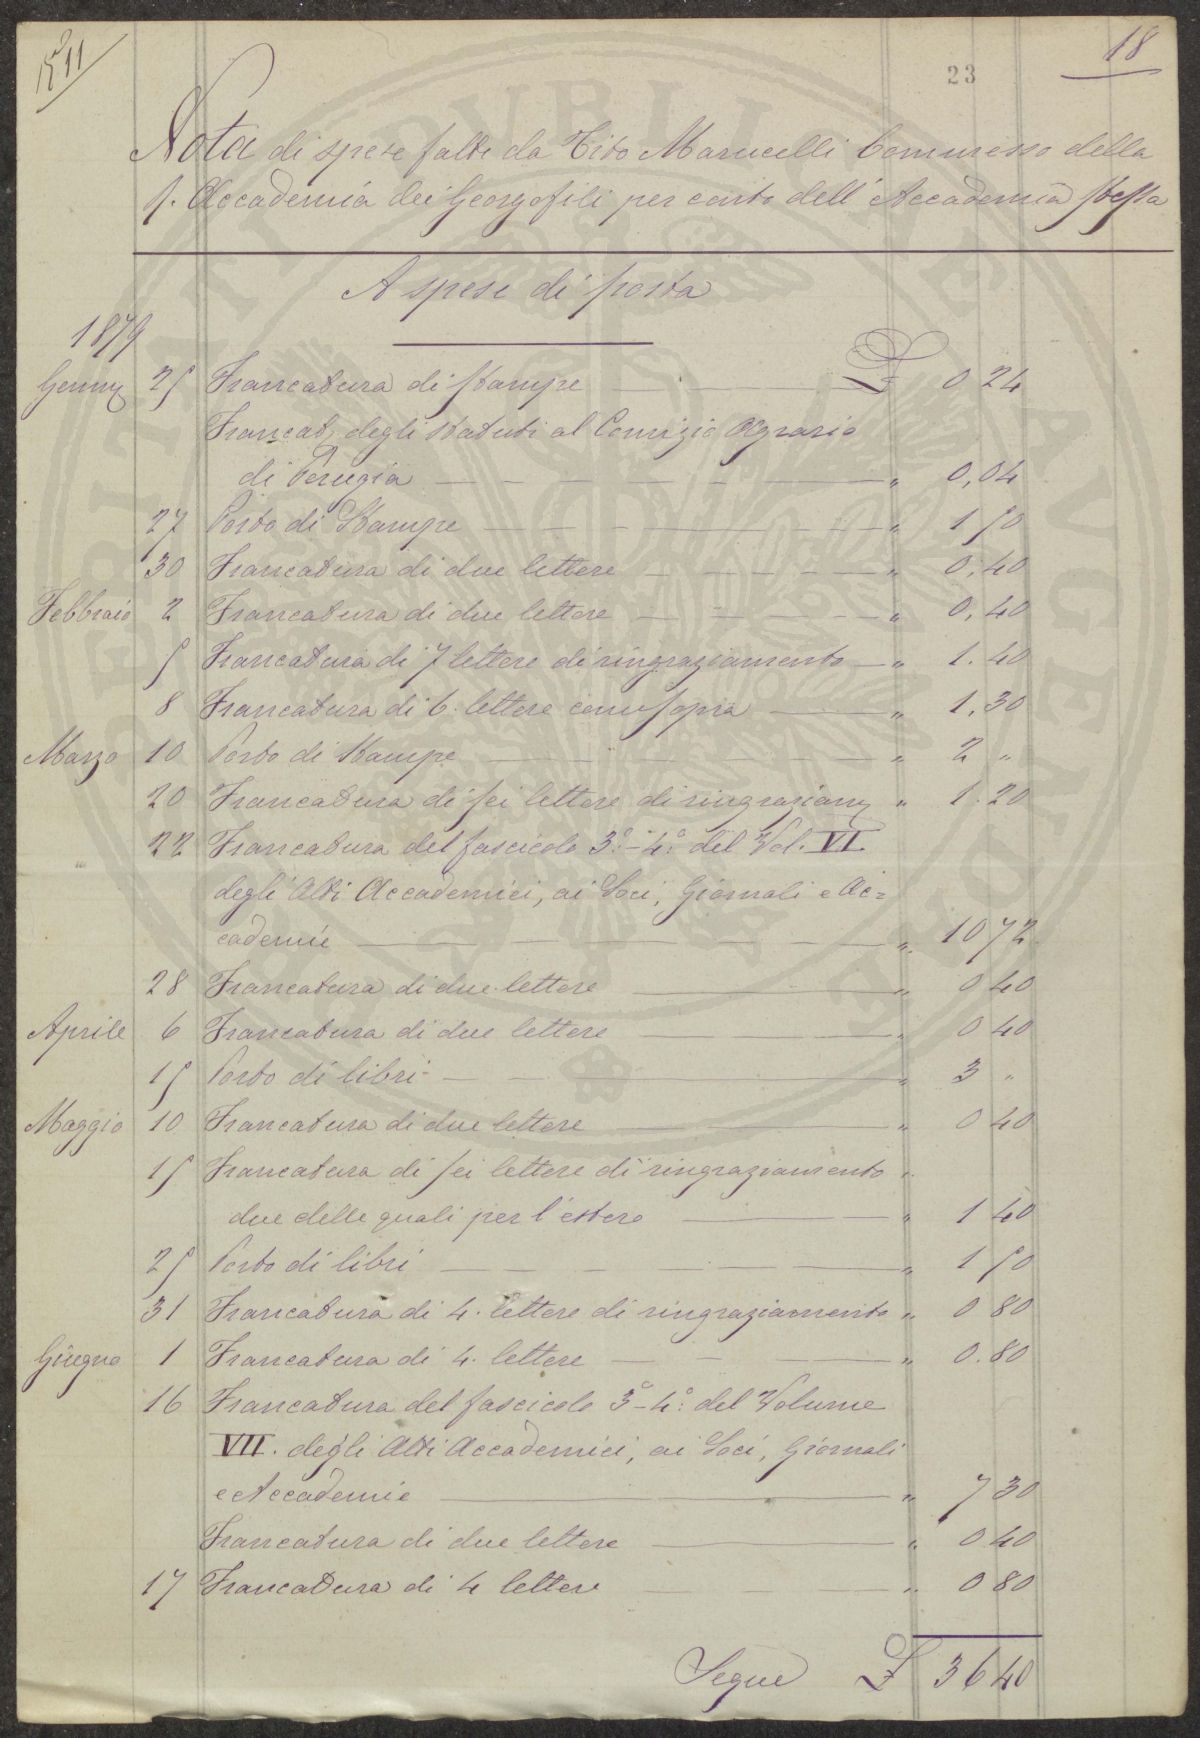 18
23
Nota di spese fatte da Tito Marucelli Commesso della
R. Accademia dei Georgofili per conto dell'Accademia stessa
A spese di posta
1879
Genn. 25 Francatura di stampe £ 0 24
Francat. degli statuti al Comizio Agrario
di Perugia — " 0,04
27 Porto di Stampe — " 1 50
30 Francatura di due lettere — " 0,40
Febbraio 2 Francatura di due lettere — " 0,40
5 Francatura di 7 lettere di ringraziamento — " 1.40
8 Francatura di 6. lettere come sopra — " 1,30
Marzo 10 Porto di Stampe — " 2 "
20 Francatura di sei lettere di ringraziam. " 1.20
22 Francatura del fascicolo 3.° - 4.° del Vol. VI.
degli Atti Accademici, ai Soci, Giornali e Ac=
cademie — " 10 72
28 Francatura di due lettere — " 0 40
Aprile 6 Francatura di due lettere — " 0 40
15 Porto di libri — " 3 "
Maggio 10 Francatura di due lettere — " 0 40
15 Francatura di sei lettere di ringraziamento "
due delle quali per l'estero — " 1 40
25 Porto di libri — " 1 50
31 Francatura di 4. lettere di ringraziamento " 0 80
Giugno 1 Francatura di 4. lettere — " 0.80
16 Francatura del fascicolo 3° - 4.° del Volume
VII. degli Atti Accademici, ai Soci, Giornali
e Accademie — " 7 30
Francatura di due lettere — " 0 40
17 Francatura di 4 lettere — " 0 80
Segue £ 36 40